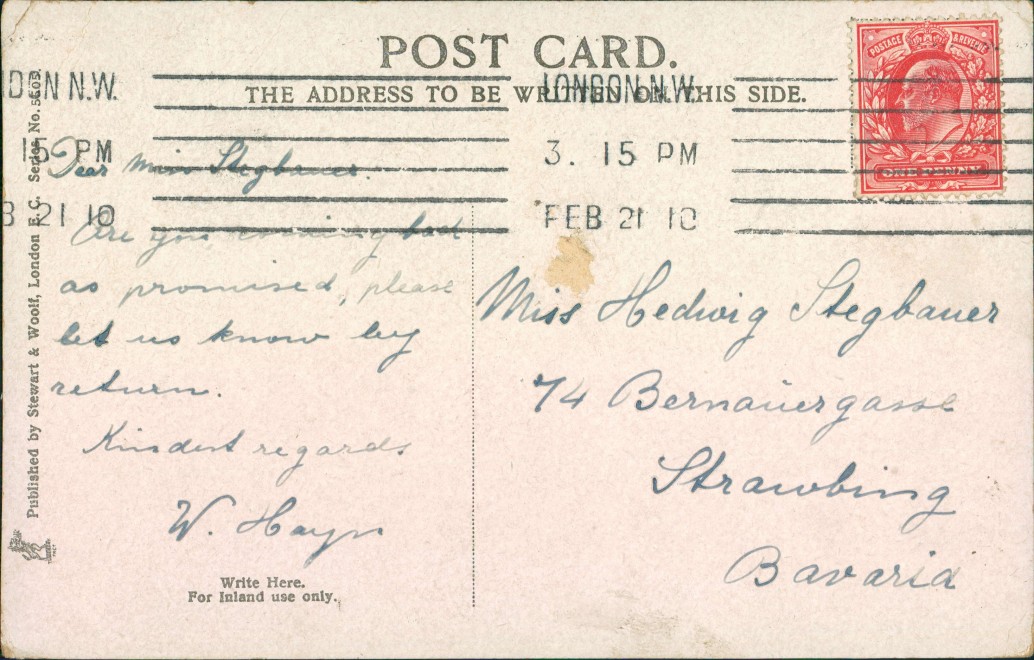 POST CARD.
THE ADDRESS TO BE WRITTEN ON THIS SIDE.
POSTAGE & REVENUE
ONE PENNY
DON N.W.
15 PM
B 21 10
LONDON. N.W.
3. 15 PM
FEB 21 10
Published by Stewart & Woolf, London E.C. Series No. 5605.
Dear Miss Stegbauer.
Are you coming back
as promised, please
let us know by
return.
Kindest regards
W. Hayn
Write Here.
For Inland use only.
Miss Hedwig Stegbauer
74 Bernauergasse
Strawbing
Bavaria